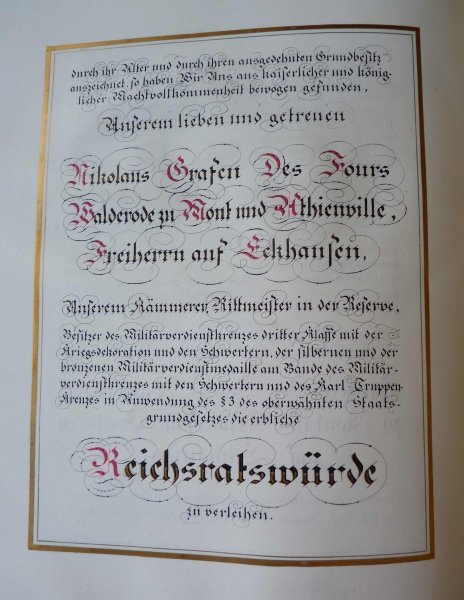 durch ihr Alter und durch ihren ausgedehnten Grundbesitz
auszeichnet, so haben Wir Uns aus kaiserlicher und könig-
licher Machtvollkommenheit bewogen gefunden,
Unserem lieben und getreuen
Nikolaus Grafen Des Fours
Walderode zu Mont und Athienville,
Freiherrn auf Eckhausen,
Unserem Kämmerer, Rittmeister in der Reserve,
Besitzer des Militärverdienstkreuzes dritter Klasse mit der
Kriegsdekoration und den Schwertern, der silbernen und der
bronzenen Militärverdienstmedaille am Bande des Militär-
verdienstkreuzes mit den Schwertern und des Karl Truppen-
Kreuzes in Anwendung des §3 des oberwähnten Staats-
grundgesetzes die erbliche
Reichsratswürde
zu verleihen.